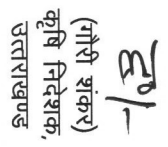 ह०/-
(गौरी शंकर)
कृषि निदेशक,
उत्तराखण्ड